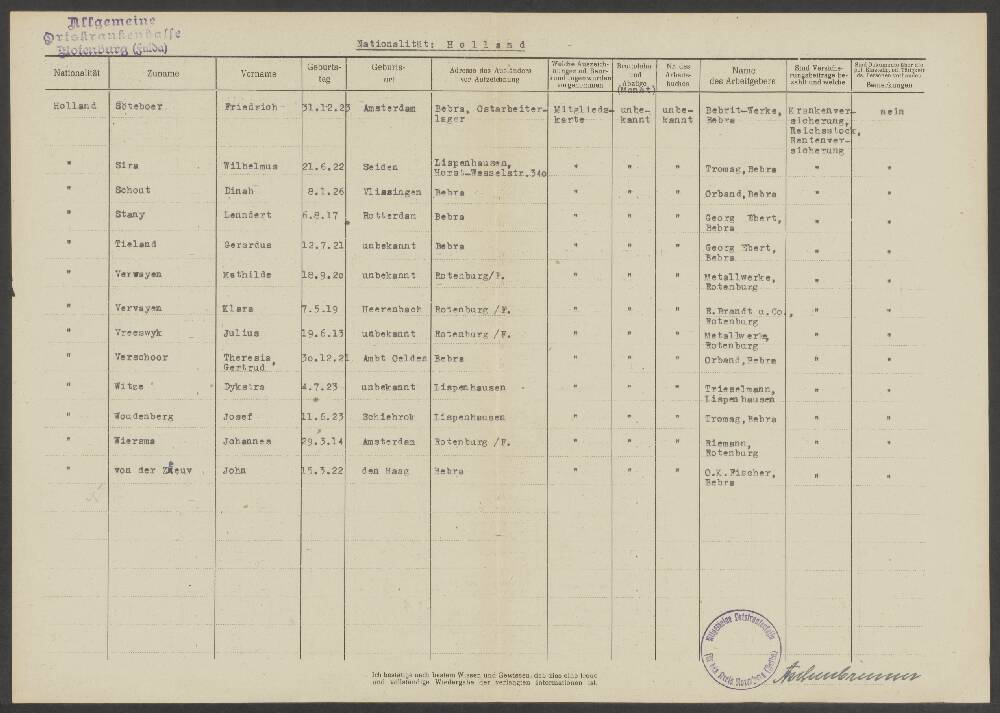 Allgemeine
Ortskrankenkasse
Rotenburg (Fulda)
Nationalität: Holland
Nationalität Zuname Vorname Geburts-tag Geburts-ort Adresse des Ausländers vor Aufzeichnung Name des Arbeitgebers Bemerkungen
Holland Söteboer Friedrich 31.12.23 Amsterdam Bebra, Ostarbeiter- Mitglieds- unbe- unbe- Bebrit-Werke, Krankenver- nein
lager karte kannt kannt Bebra sicherung,
Reichsstock,
Rentenver-
sicherung
" Sira Wilhelmus 21.6.22 Seiden Lispenhausen, " " " Tromag, Bebra " "
Horst-Wesselstr.340
" Schout Dinah 8.1.26 Vlissingen Bebra " " " Orband, Bebra " "
" Stany Lenndert 6.8.17 Rotterdam Bebra " " " Georg Ebert, " "
Bebra
" Tieland Gerardus 12.7.21 unbekannt Bebra " " " Georg Ebert, " "
Bebra
" Verwayen Mathilde 18.9.20 unbekannt Rotenburg/F. " " " Metallwerke, " "
Rotenburg
" Vervayen Klara 7.5.19 Heerenbach Rotenburg /F. " " " E.Brandt u.Co., " "
Rotenburg
" Vreeswyk Julius 19.6.13 unbekannt Rotenburg /F. " " " Metallwerke, " "
Rotenburg
" Verschoor Theresia, 30.12.21 Ambt Gelden Bebra " " " Orband, Bebra " "
Gertrud
" Witze Dykstra 4.7.23 unbekannt Lispenhausen " " " Trieselmann, " "
Lispenhausen
" Woudenberg Josef 11.6.23 Schiebrok Lispenhausen " " " Tromag, Bebra " "
" Wiersma Johannes 29.3.14 Amsterdam Rotenburg /F. " " " Riemann, " "
Rotenburg
" von der Zeeuv John 15.3.22 den Haag Bebra " " " O.K.Fischer, " "
Bebra
Allgemeine Ortskrankenkasse
für den Kreis Rotenburg
Ich bestätige nach bestem Wissen und Gewissen, daß dies eine treue
und vollständige Wiedergabe der verlangten Informationen ist.
Aschenbrenner